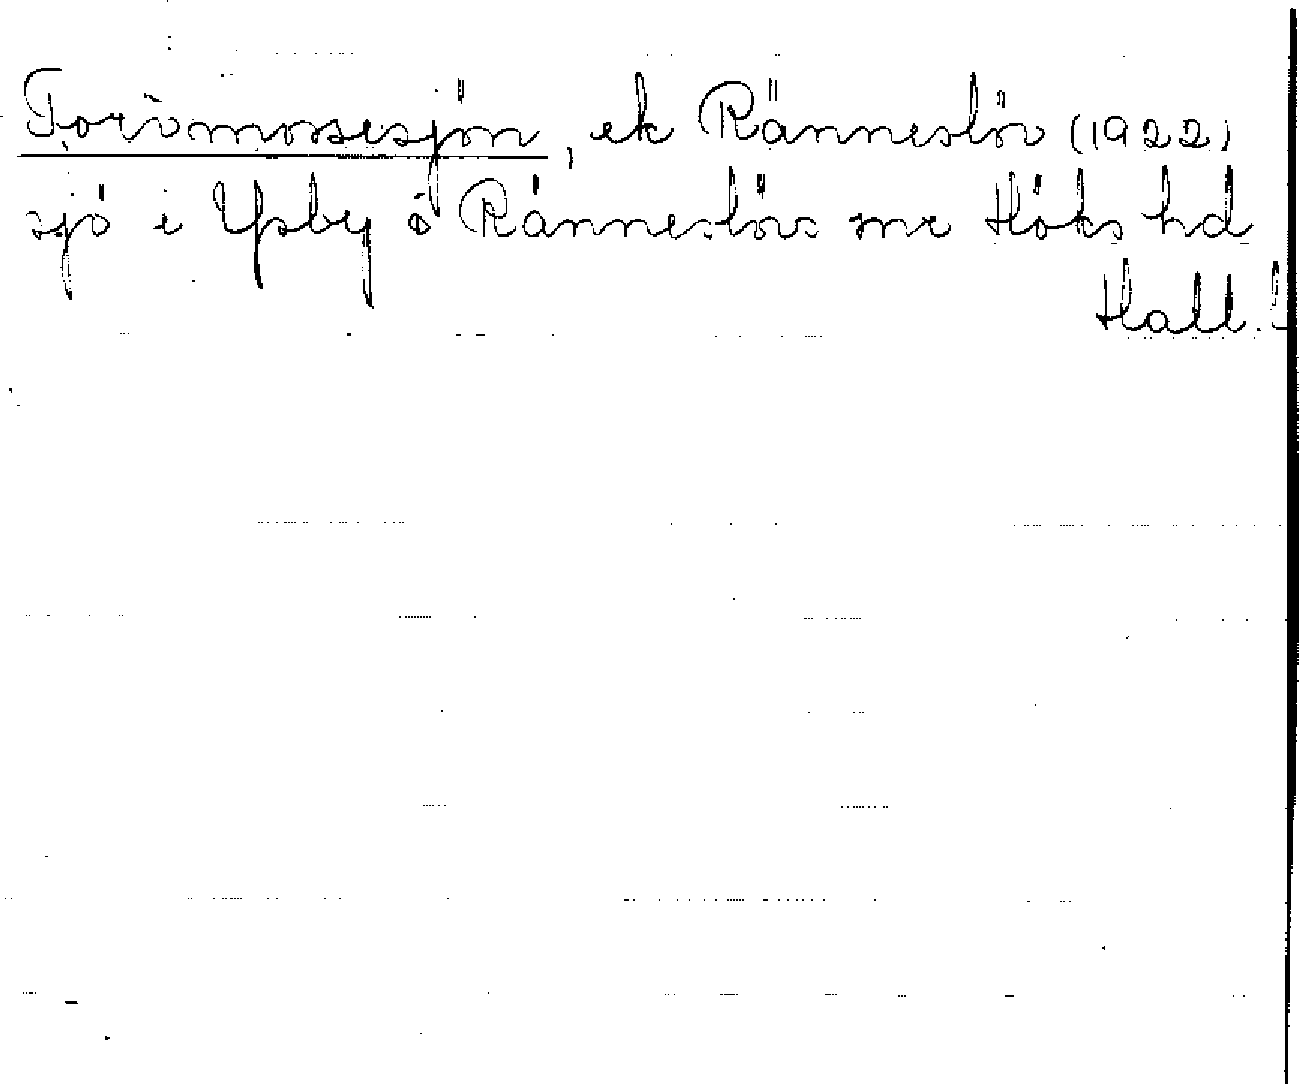 Torvmossesjön, ek Ränneslöv (1922)
sjö i Ysby o Ränneslövs snr Höks hd
Hall. L